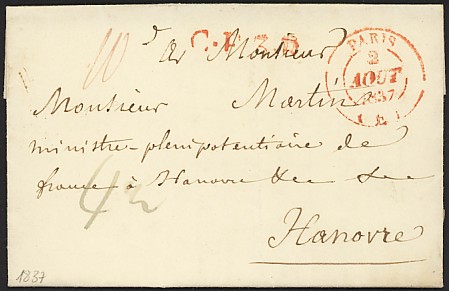 C.F.3.R.
PARIS
2
AOUT
1837
A Monsieur
Monsieur Martin
ministre-plenipotentiaire de
france à Hanovre &c &c
Hanovre
1837